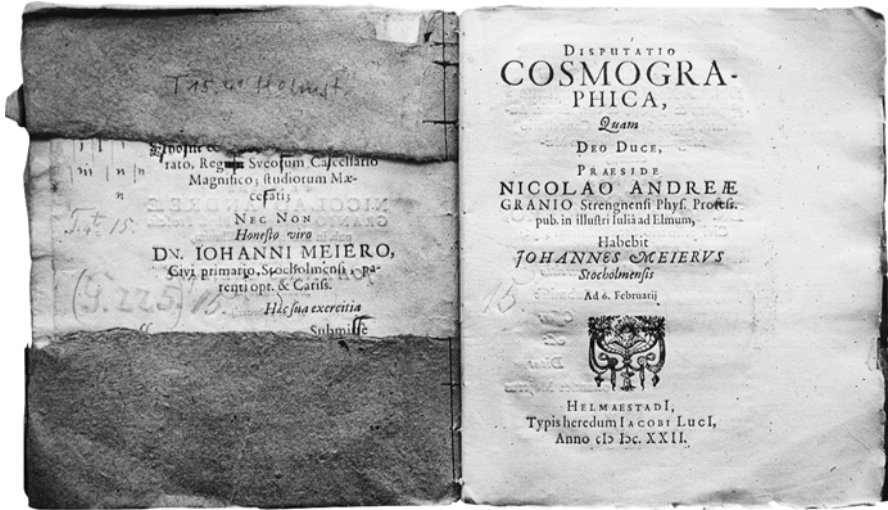 T 15. 4° Helmst.
rato, Regum Sveosum Cascellario
Magnifico; studiorum Mæ-
cefati;
NEC NON
Honesto viro
DN. IOHANNI MEIERO,
Civi primario, Stocholmensi, pa-
renti opt. & Cariss.
Hæc sua exercitia
Submisse
T. 4to 15.
(G. 225) 15.
DISPUTATIO
COSMOGRA-
PHICA,
Quam
DEO DUCE,
PRAESIDE
NICOLAO ANDREÆ
GRANIO Strengnensi Phys. Profess.
pub. in illustri Iuliâ ad Elmum,
Habebit
JOHANNES MEIERVS
Stocholmensis
Ad 6. Februarij
15
HELMAESTADI,
Typis heredum IACOBI LucI,
Anno cIↄ Iↄc. XXII.